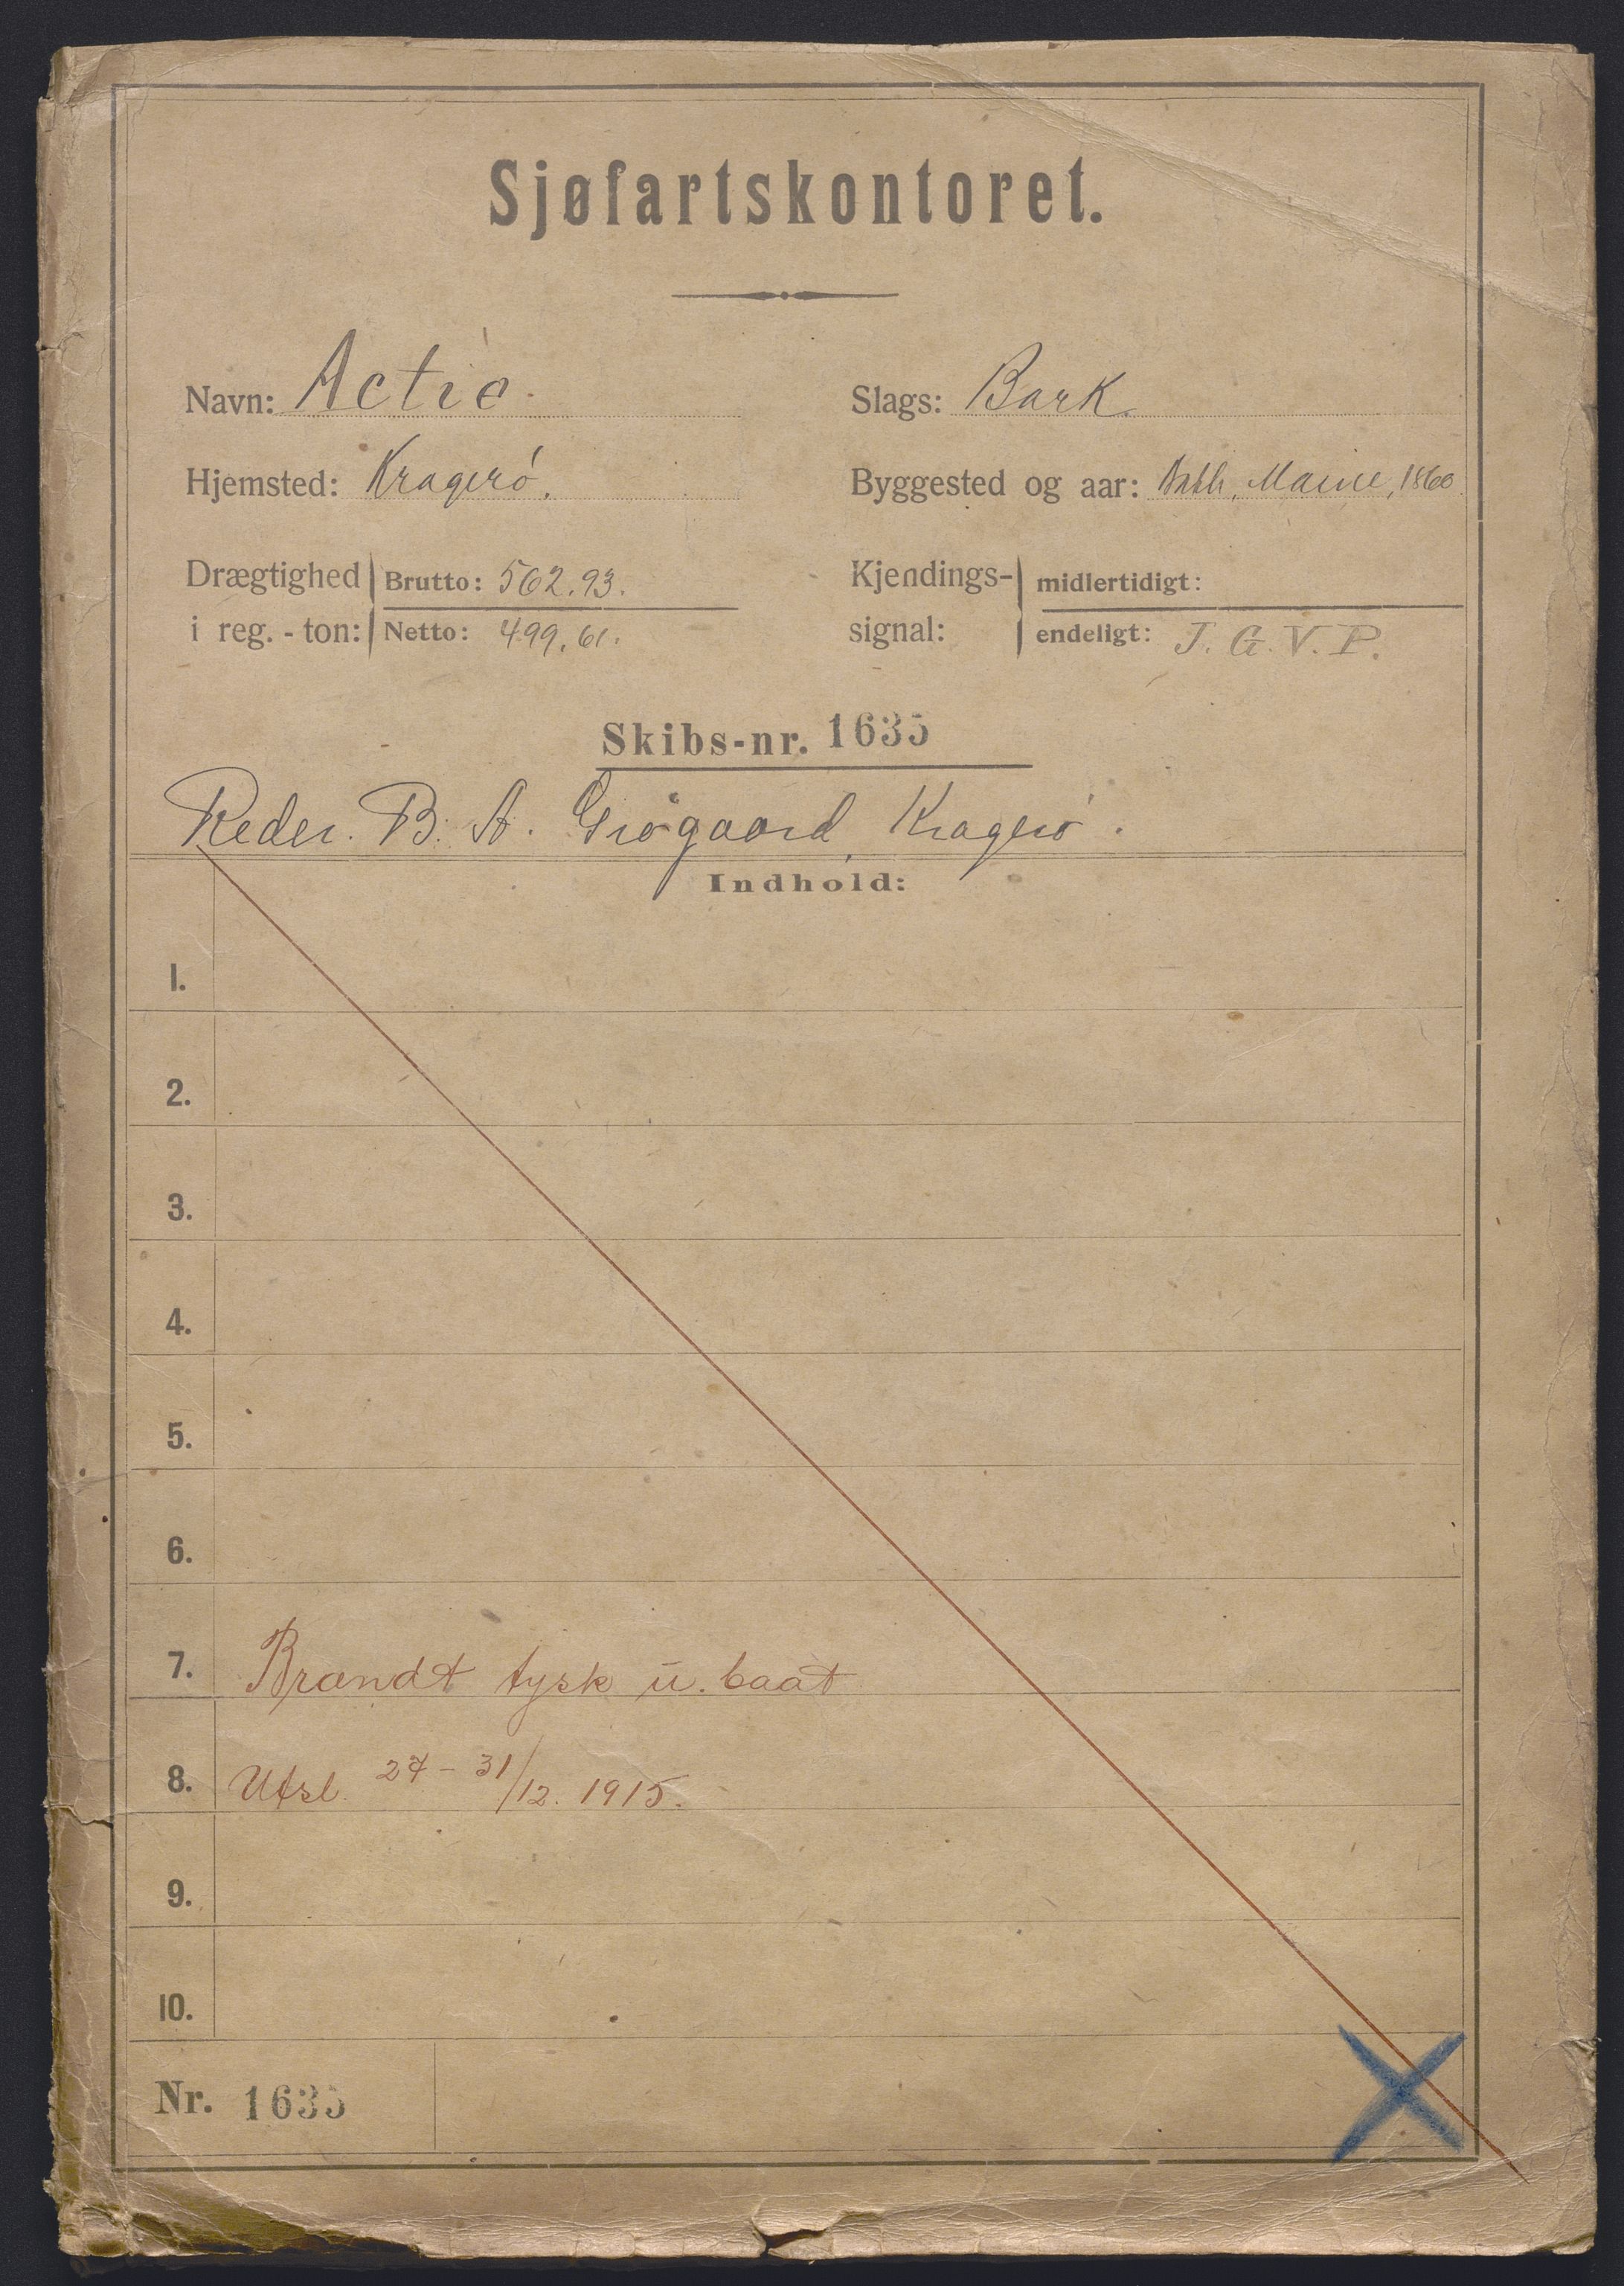 Sjøfartskontoret.
Navn: Actie
Slags: Bark
Hjemsted: Kragerø.
Byggested og aar: Bath, Maine, 1860
Drægtighed i reg.-ton: Brutto: 562.93.
Netto: 499.61.
Kjendings-signal: midlertidigt:
endeligt: J. G. V. P.
Skibs-nr. 1635
Reder. B. A. Grøgaard, Kragerø.
Indhold:
1.
2.
3.
4.
5.
6.
7. Brændt tysk u. baat
8. Utsl. 27-31/12. 1915.
9.
10.
Nr. 1635